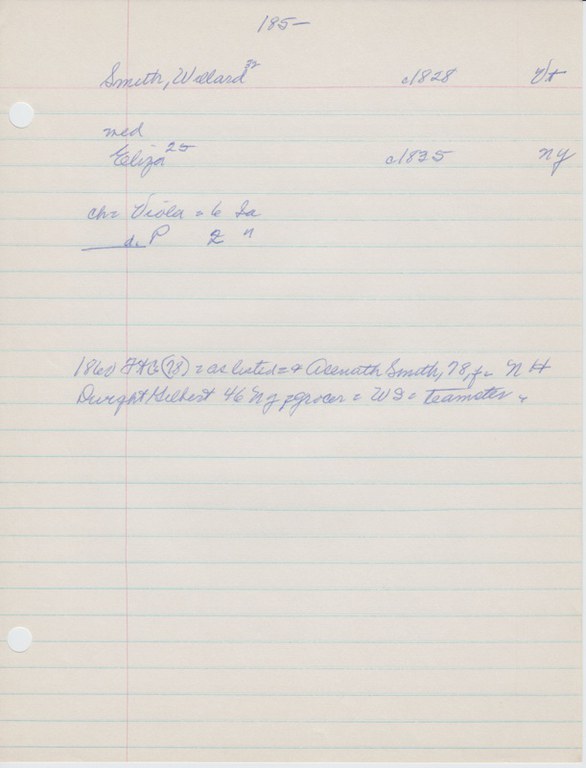 185-
Smith, Willard 32 c1828 Vt
med
Eliza 25 c1835 NY
ch= Viola = 6 Ia
d. P 2 "
1860 (78) = as listed = & Asenath Smith, 78, f = N H
Dwight Gilbert 46 NY = grocer = WS = teamster